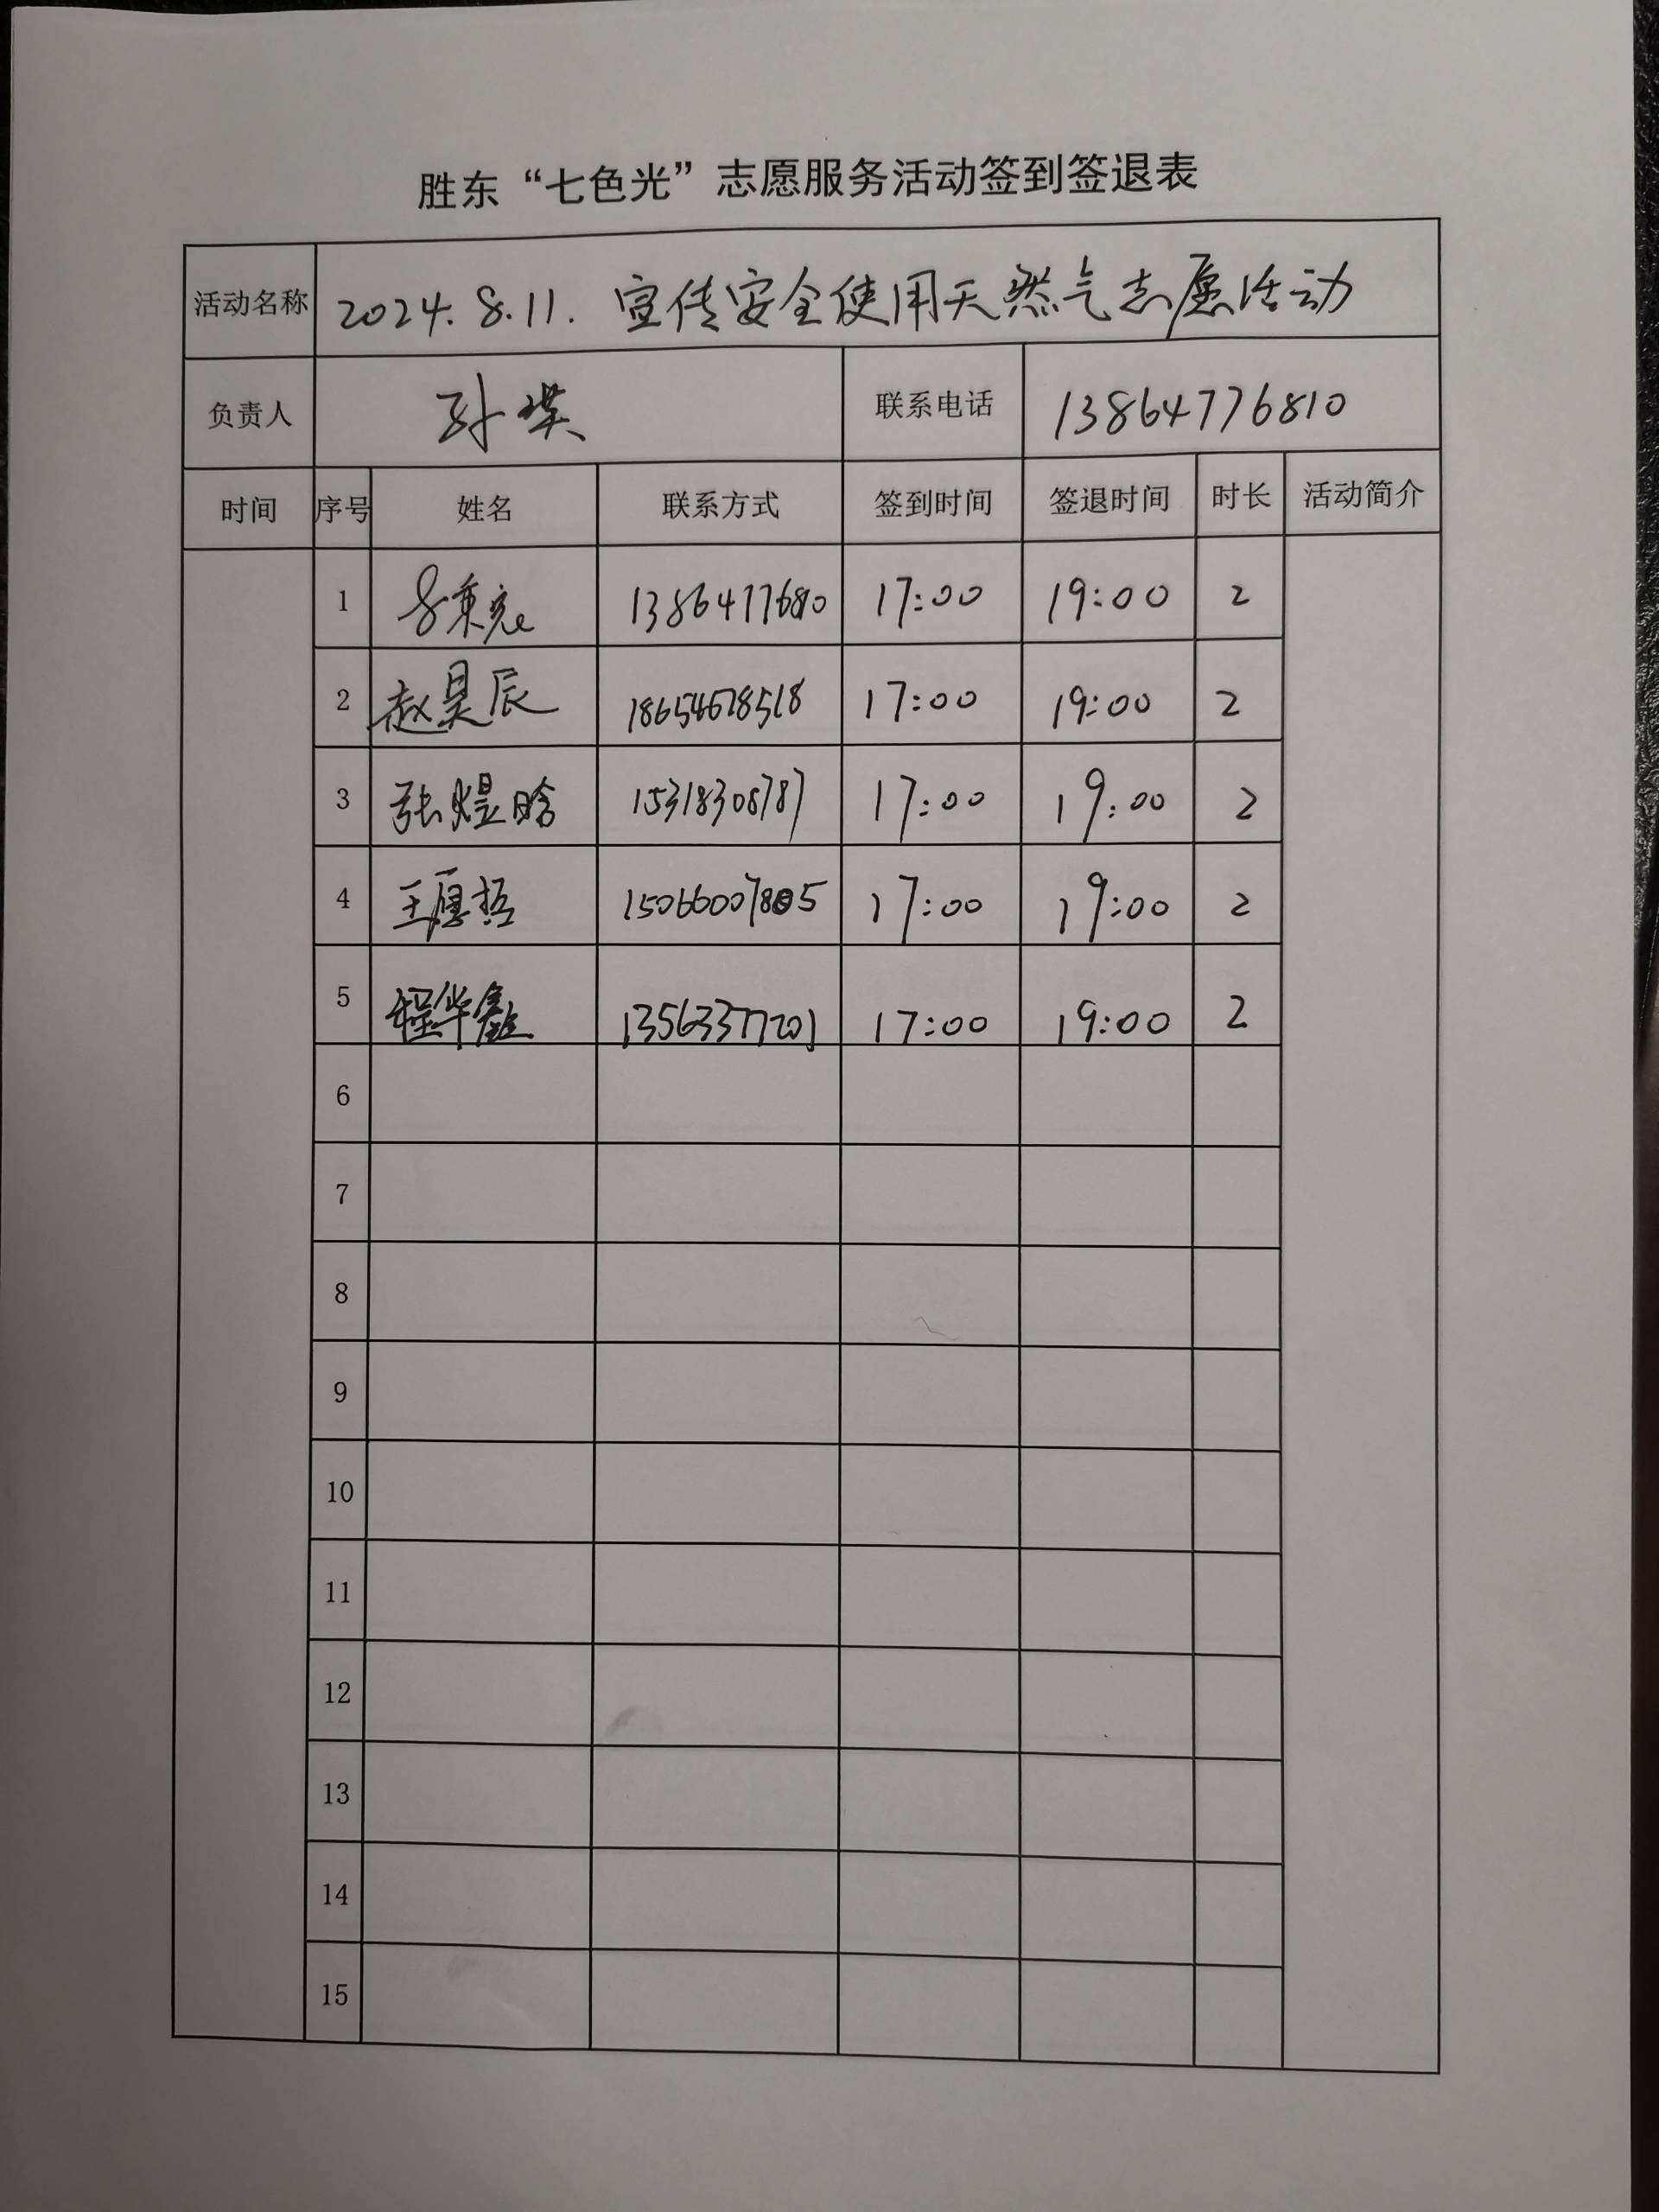 胜东“七色光”志愿服务活动签到签退表
活动名称 2024.8.11. 宣传安全使用天然气志愿活动
负责人 孙瑛 联系电话 13864776810
时间 序号 姓名 联系方式 签到时间 签退时间 时长 活动简介
1 17:00 19:00 2
2 赵昊辰 18654678518 17:00 19:00 2
3 张煜晗 15318308787 17:00 19:00 2
4 王厚哲 15066007805 17:00 19:00 2
5 程华鑫 13563377201 17:00 19:00 2
6
7
8
9
10
11
12
13
14
15